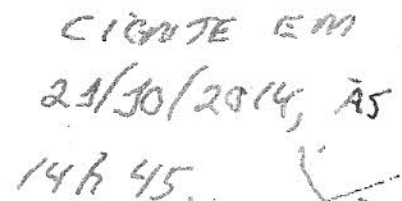 CIENTE EM
21/10/2014, ÀS
14h 45